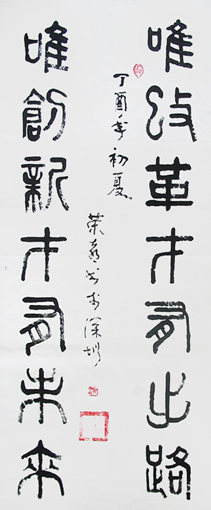 唯改革才有出路
丁酉年初夏
书于深圳
唯創新才有未來